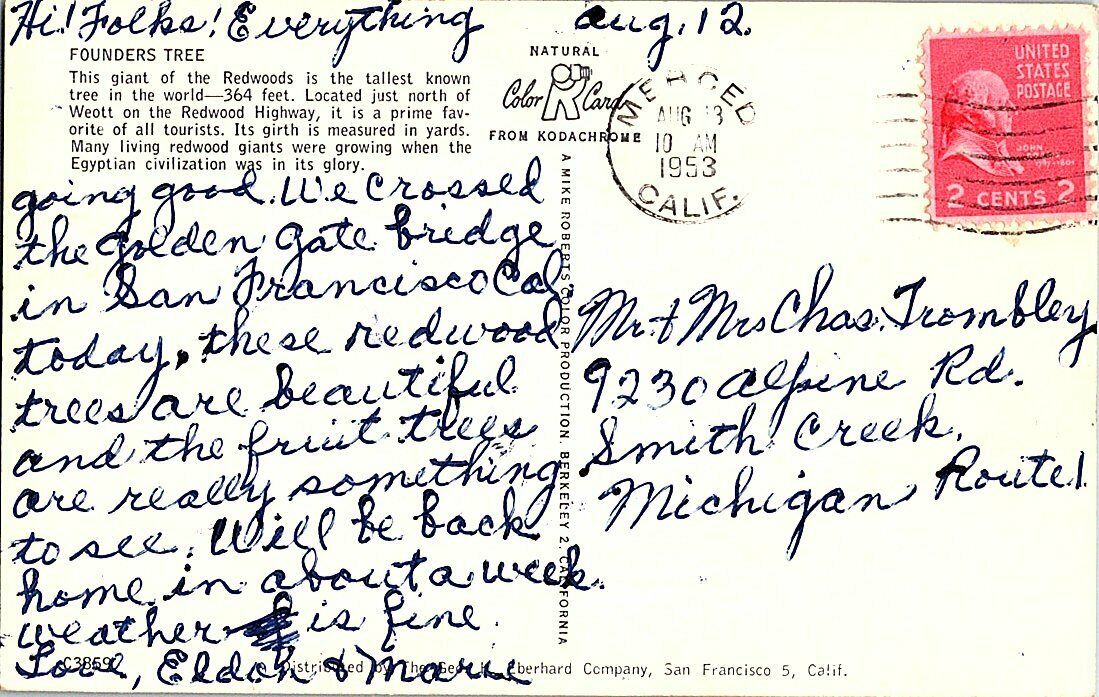 Hi! Folks! Everything
Aug. 12.
FOUNDERS TREE
This giant of the Redwoods is the tallest known
tree in the world—364 feet. Located just north of
Weott on the Redwood Highway, it is a prime fav-
orite of all tourists. Its girth is measured in yards.
Many living redwood giants were growing when the
Egyptian civilization was in its glory.
NATURAL
Color Card
FROM KODACHROME
MERCED
AUG 13
10 AM
1953
CALIF.
UNITED
STATES
POSTAGE
JOHN
2 CENTS 2
going good. We crossed
the golden gate bridge
in San Francisco Cal.
today, these redwood
trees are beautiful
and the fruit trees
are really something
to see. Will be back
home in about a week.
weather is fine.
Love, Eldon & Marie
A MIKE ROBERTS COLOR PRODUCTION. BERKELEY 2. CALIFORNIA
Mr + Mrs Chas. Trombley
9230 Alpine Rd.
Smith Creek.
Michigan Route 1
C38592
Distributed by The Geo. Eberhard Company, San Francisco 5, Calif.